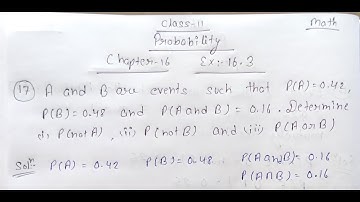 Class-11
Math
Probability
Chapter-16 Ex:- 16.3
(17) A and B are events such that P(A)=0.42,
P(B)=0.48 and P(A and B) = 0.16. Determine
(i) P(not A), (ii) P(not B) and (iii) P(A or B)
Sol:- P(A) = 0.42 P(B)=0.48. P(A and B)= 0.16
P(A∩B) = 0.16